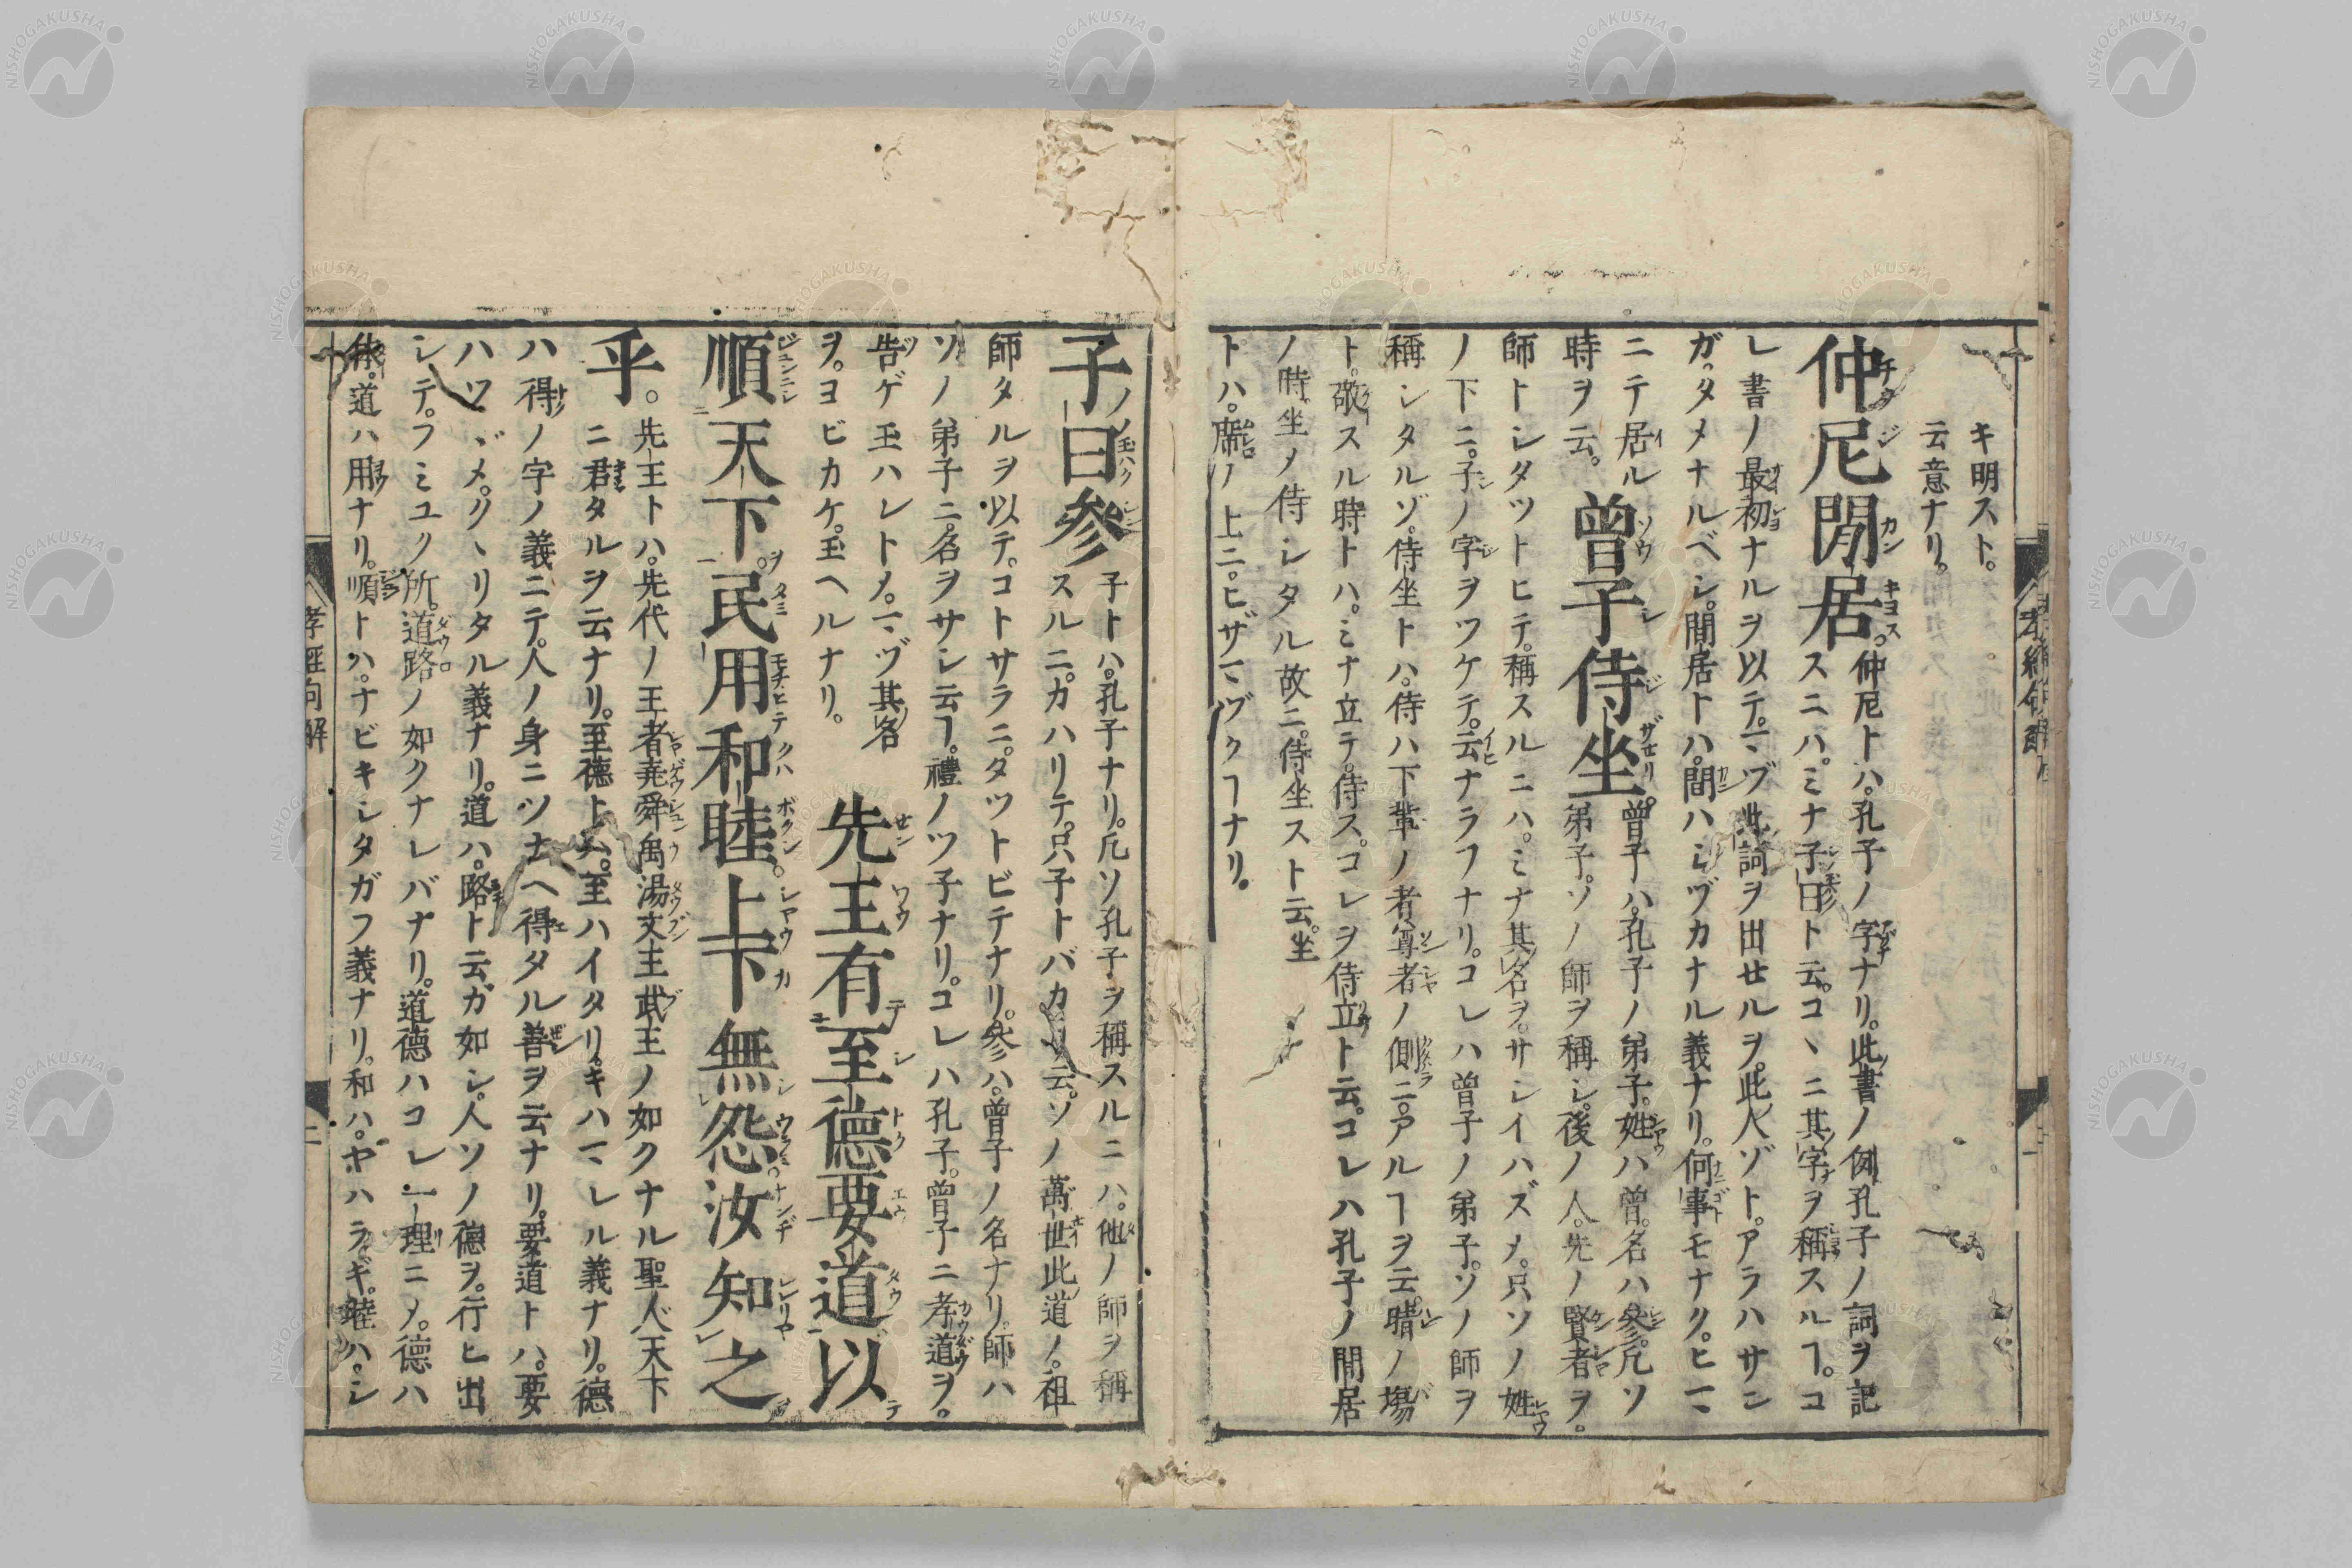 キ明スト。
云意ナリ。
仲尼間居。仲尼トハ。孔子ノ字ナリ。此書ノ例孔子ノ詞ヲ記
スニハ。ミナ子曰ト云。コヽニ其字ヲ稱スルヿ。コ
レ書ノ最初ナルヲ以テ。マヅ此詞ヲ出セルヲ。此人ゾト。アラハサン
ガ。タメナルベシ。間居トハ。間ハシヅカナル義ナリ。何事モナク。ヒマ
ニテ居ル
時ヲ云。
曾子侍坐。曾子ハ。孔子ノ弟子。姓ハ曾。名ハ參。凡ソ
弟子。ソノ師ヲ稱シ。後ノ人。先ノ賢者ヲ。
師トシタツトヒテ。稱スルニハ。ミナ其名ヲ。サシイハズメ。只ソノ姓
ノ下ニ。子ノ字ヲツケテ。云ナラフナリ。コレハ曾子ノ弟子。ソノ師ヲ
稱シタルゾ。侍坐トハ。侍ハ下輩ノ者尊者ノ側ニ。アルヿヲ云。晴ノ塲
ト。敬スル時トハ。ミナ立テ。侍ス。コレヲ侍立ト云。コレハ孔子ノ間居
ノ時坐ノ侍シタル故ニ。侍坐スト云。坐
トハ。席ノ上ニ。ヒザマヅクヿナリ。
子曰參子トハ。孔子ナリ。凡ソ孔子ヲ稱スルニハ。他ノ師ヲ稱
スルニ。カハリテ。只子トバカリ云。ソノ萬世此道ノ。祖
師タルヲ以テ。コトサラニ。タツトビテナリ。參ハ。曾子ノ名ナリ。師ハ
ソノ弟子ニ。名ヲサシ云ヿ。禮ノツ子ナリ。コレハ孔子。曾子ニ孝道ヲ。
告ゲ玉ハレトメ。マヅ其名
ヲ。ヨビカケ。玉ヘルナリ。
先王有至德要道以
順天下。民用和睦。上下無怨。汝知之
乎。先王トハ。先代ノ王者堯舜禹湯文王武王ノ如クナル聖人天下
ニ君タルヲ云ナリ。至德トハ。至ハイタリ。キハマレル義ナリ。德
ハ得ノ字ノ義ニテ。人ノ身ニツナヘ得タル善ヲ云ナリ。要道トハ。要
ハツヾメ。クヽリタル義ナリ。道ハ。路ト云ガ如シ。人ソノ德ヲ。行ヒ出
シテ。フミユク所。道路ノ如クナレバナリ。道德ハコレ一理ニメ。德ハ
體。道ハ用ナリ。順トハ。ナビキシタガフ義ナリ。和ハ。ヤハラギ。睦ハ。シ
孝經句解
二